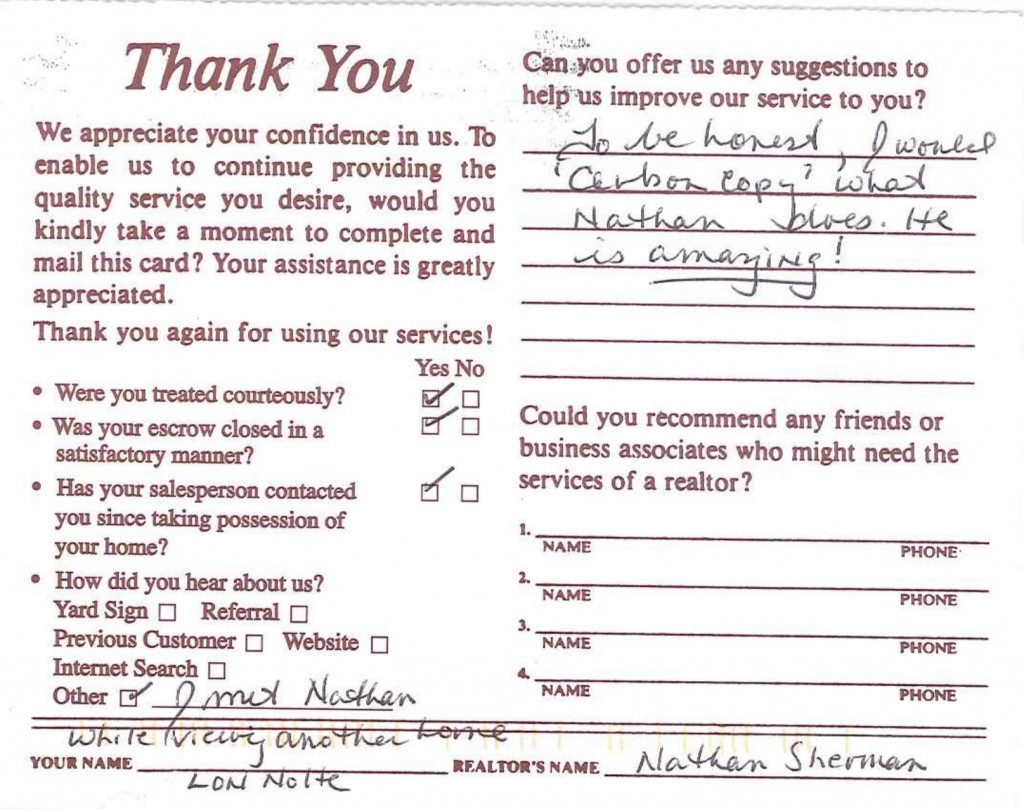 Thank You
We appreciate your confidence in us. To
enable us to continue providing the
quality service you desire, would you
kindly take a moment to complete and
mail this card? Your assistance is greatly
appreciated.
Thank you again for using our services!
Yes No
• Were you treated courteously?
• Was your escrow closed in a
satisfactory manner?
• Has your salesperson contacted
you since taking possession of
your home?
• How did you hear about us?
Yard Sign Referral
Previous Customer Website
Internet Search
Other I met Nathan
while viewing another home
YOUR NAME
Lori Nolte
Can you offer us any suggestions to
help us improve our service to you?
To be honest, I would
'Carbon Copy' what
Nathan does. He
is amazing!
Could you recommend any friends or
business associates who might need the
services of a realtor?
1.
NAME PHONE
2.
NAME PHONE
3.
NAME PHONE
4.
NAME PHONE
REALTOR'S NAME Nathan Sherman